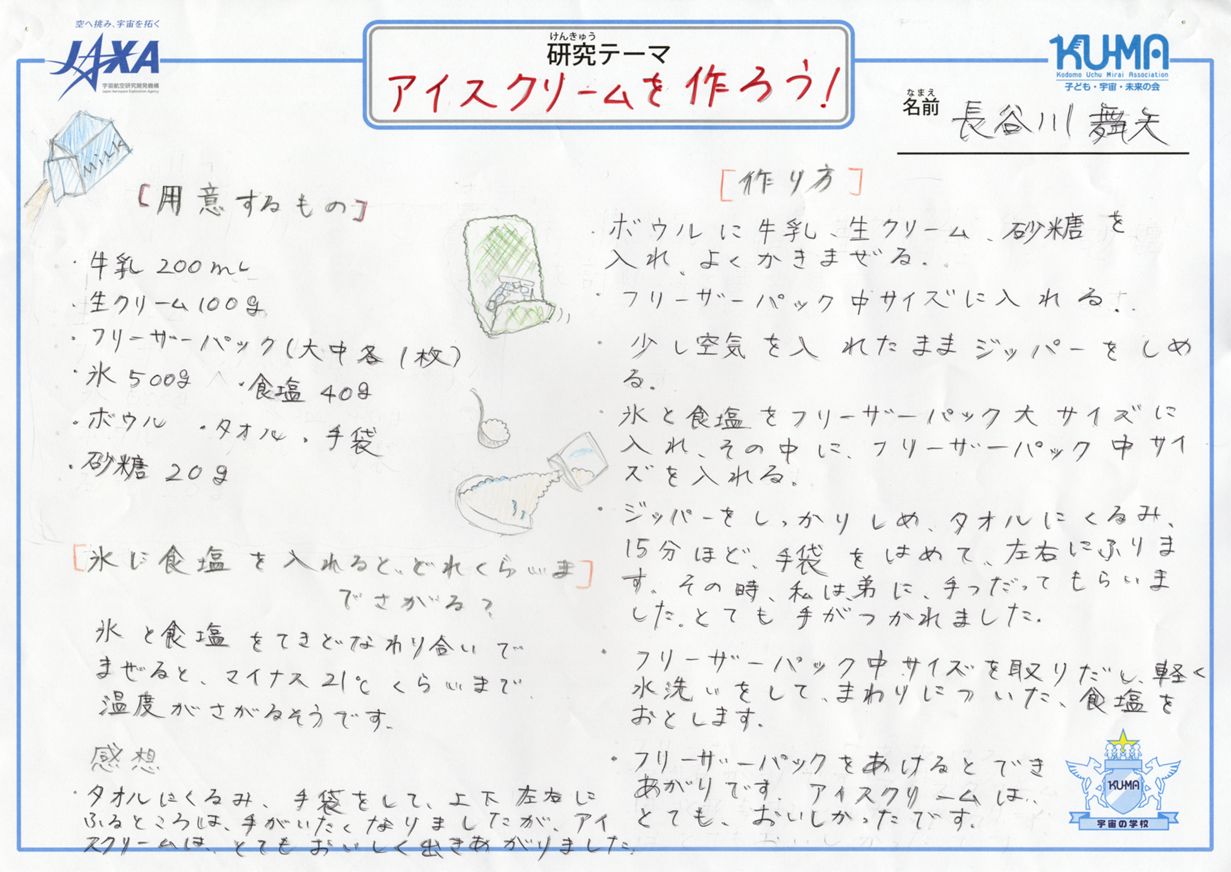 空へ挑み、宇宙を拓く
JAXA
宇宙航空研究開発機構
Japan Aerospace Exploration Agency
けんきゅう
研究テーマ
アイスクリームを作ろう!
KU-MA
Kodomo Uchu Mirai Association
子ども・宇宙・未来の会
なまえ
名前 長谷川 舞矢
Milk
[用意するもの]
・牛乳 200mL
・生クリーム100g
・フリーザーパック(大中各1枚)
・氷 500g ・食塩 40g
・ボウル ・タオル ・手袋
・砂糖 20g
[氷に食塩を入れると、どれくらいま
でさがる?]
氷と食塩をてきどなわり合いで
まぜると、マイナス21℃くらいまで
温度がさがるそうです。
感想
・タオルにくるみ、手袋をして、上下左右に
ふるところは、手がいたくなりましたが、アイ
スクリームは、とてもおいしく出きあがりました。
[作り方]
・ボウルに牛乳、生クリーム、砂糖を
入れ、よくかきまぜる。
・フリーザーパック中サイズに入れる。
・少し空気を入れたままジッパーをしめ
る。
・氷と食塩をフリーザーパック大サイズに
入れ、その中に、フリーザーパック中サイ
ズを入れる。
・ジッパーをしっかりしめ、タオルにくるみ、
15分ほど、手袋をはめて、左右にふりま
す。その時、私は、弟に、手つだってもらいま
した。とても手がつかれました。
・フリーザーパック中サイズを取りだし、軽く
水洗いをして、まわりについた、食塩を
おとします。
・フリーザーパックをあけるとでき
あがりです。アイスクリームは、
とても、おいしかったです。
KUMA
宇宙の学校